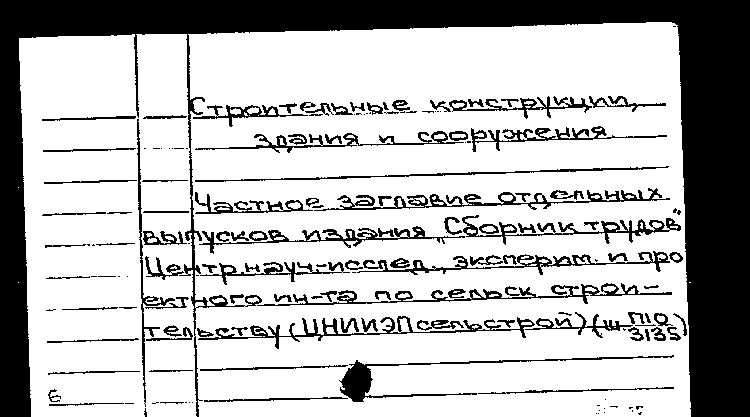 Строительные конструкции,
здания и сооружения
Частное заглавие отдельных
выпусков издания „Сборник трудов"
Центр.науч.-исслед., эксперим. и про
ектного ин-та по сельск строи-
тельству (ЦНИИЭПсельстрой) (ш П10/3135)
6